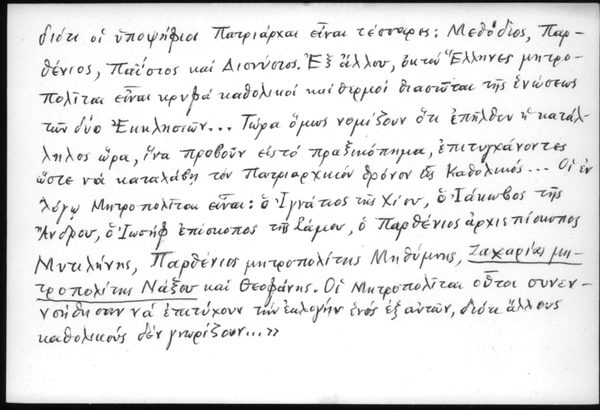 διότι οἱ ὑποψήφιοι Πατριάρχαι εἶναι τέσσαρες: Μεθόδιος, Παρ-
θένιος, Παΐσιος καί Διονύσιος. Ἐξ ἄλλου, ὀκτώ Ἕλληνες μητρο-
πολῖται εἶναι κρυφά καθολικοί καί θερμοί θιασῶται τῆς ἑνώσεως
τῶν δύο Ἐκκλησιῶν... Τώρα ὅμως νομίζουν ὅτι ἐπῆλθεν ἡ κατάλ-
ληλος ὥρα, ἵνα προβοῦν εἰς τό πραξικόπημα, ἐπιτυγχάνοντες
ὥστε νά καταλάβῃ τόν Πατριαρχικόν θρόνον εἷς Καθολικός... Οἱ ἐν
λόγῳ Μητροπολῖται εἶναι: ὁ Ἰγνάτιος τῆς Χίου, ὁ Ἰάκωβος τῆς
Ἄνδρου, ὁ Ἰωσήφ ἐπίσκοπος τῆς Σάμου, ὁ Παρθένιος ἀρχιεπίσκοπος
Μυτιλήνης, Παρθένιος μητροπολίτης Μηθύμνης, Ζαχαρίας μη-
τροπολίτης Νάξου καί Θεοφάνης. Οἱ Μητροπολῖται οὗτοι συνεν-
νοήθησαν νά ἐπιτύχουν τήν ἐκλογήν ἑνός ἐξ αὐτῶν, διότι ἄλλους
καθολικούς δέν γνωρίζουν...»